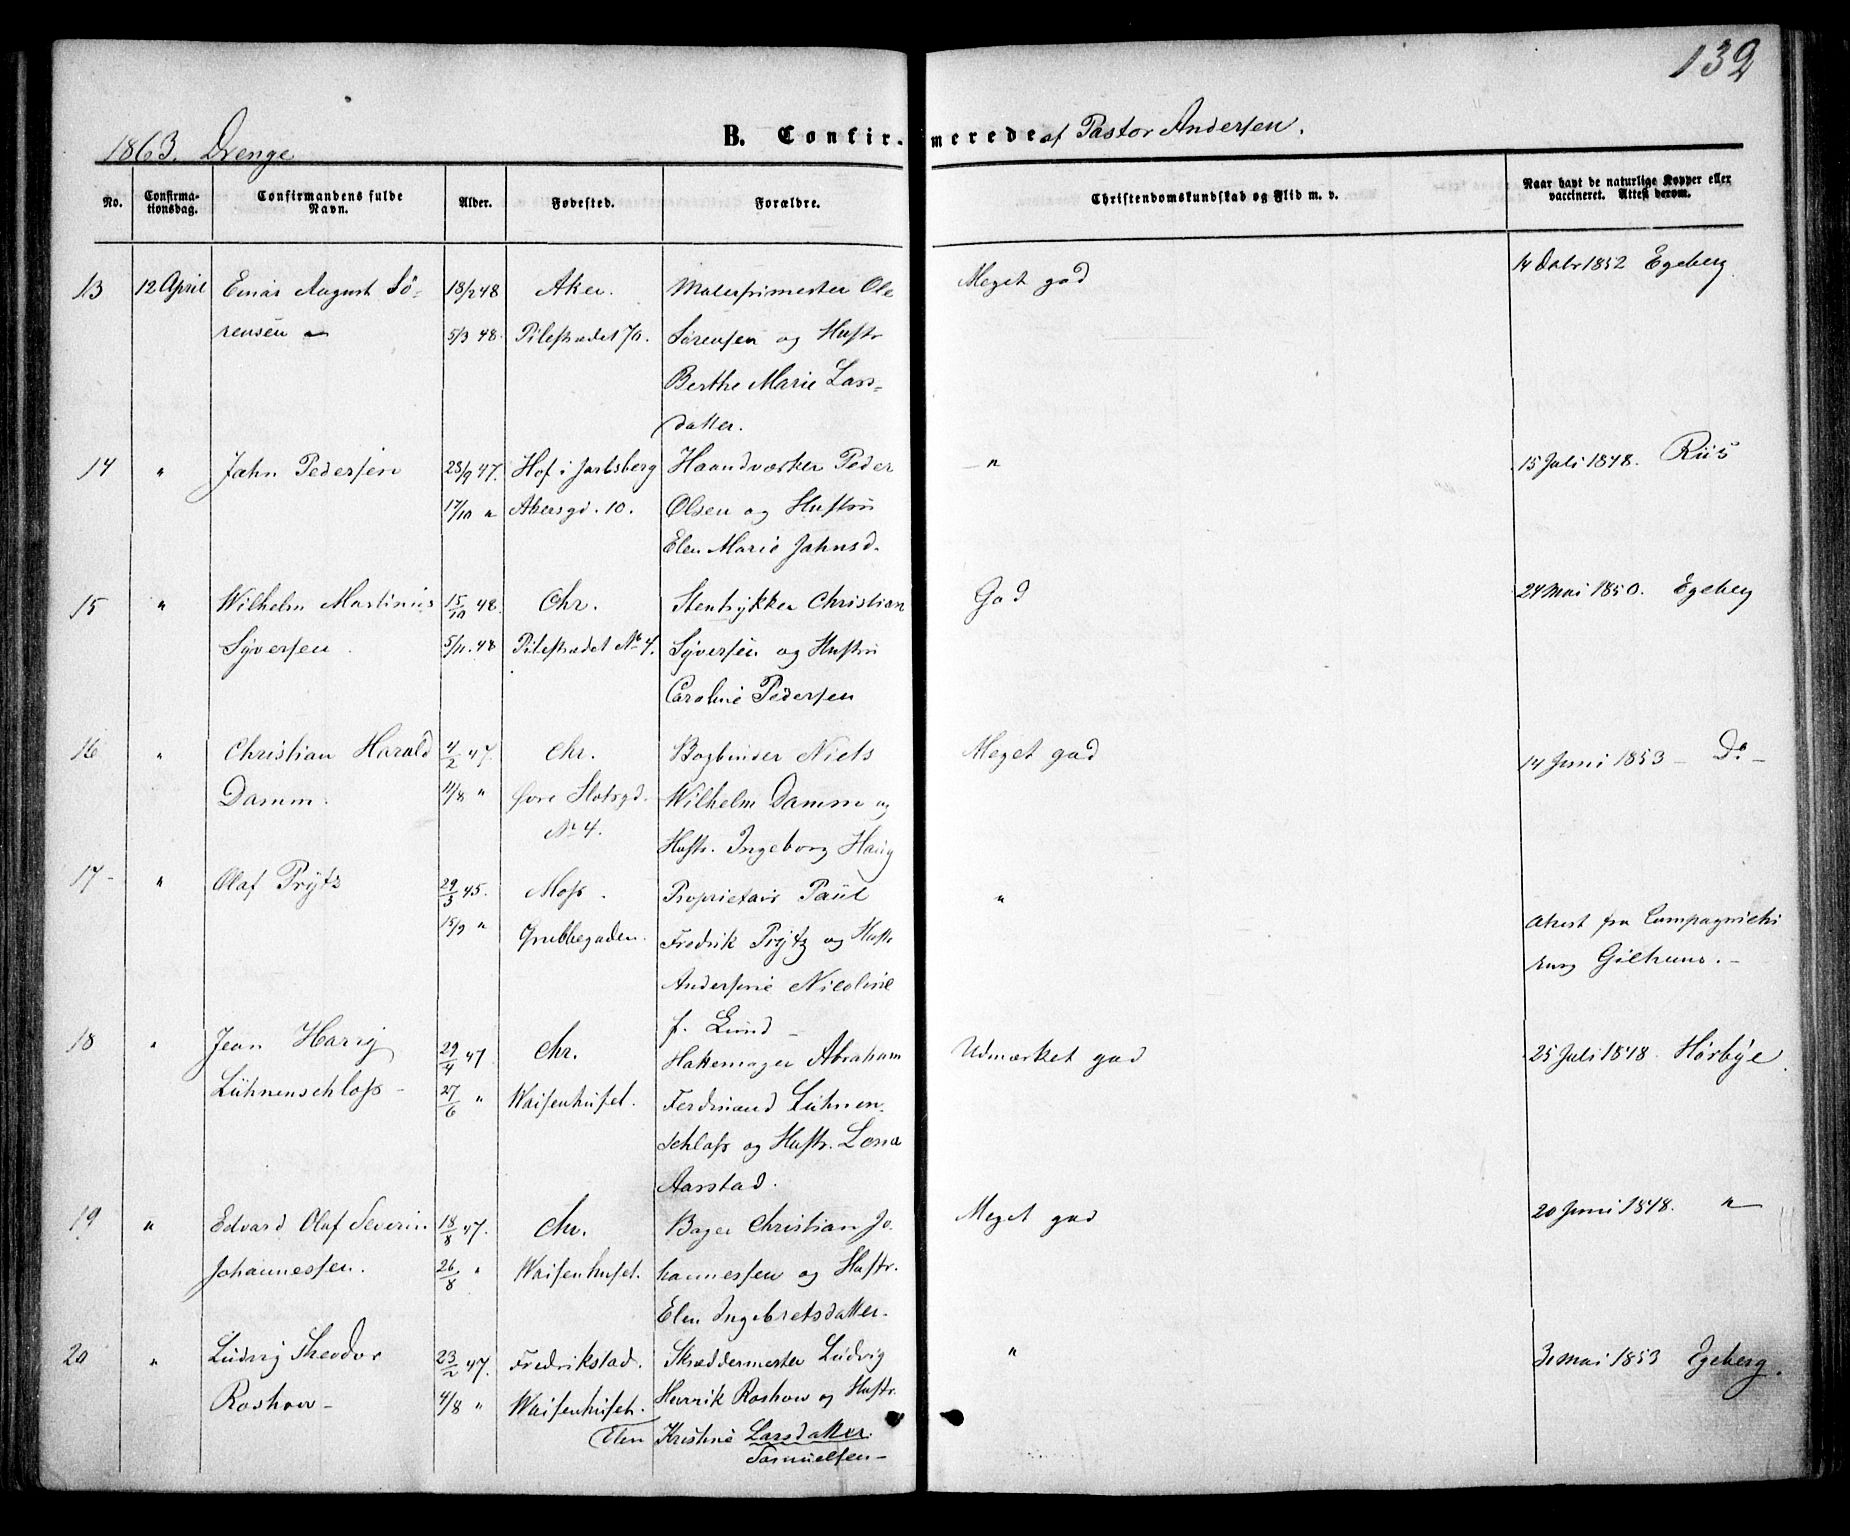 132
1863. Drenge
B. Confirmerede af Pastor Andersen.
No.
Confirma-
tionsdag.
Confirmandens fulde
Navn.
Alder.
Fødested.
Forældre.
Christendomskundskab og Flid m. v.
Naar havt de naturlige Kopper eller
vaccineret. Attest derom.
13 12 April Einar August Sö- 18/2 48 Aker. Malersvend Ole Meget god 14 Dcbr 1852 Egeberg
rensen 5/3 48. Pilestrædet 70. Sørensen og Hustr
Berthe Marie Lars-
datter.
14 " Jahn Pedersen 23/9 47. Hof i Jarlsberg Haandværker Peder " 15 Juli 1848. Riis
17/10 " Akersgd. 10. Olsen og Hustru
Elen Marie Jahnsd.
15 " Wilhelm Martinius 15/10 48. Chr. Stentrykker Christian God 24 Mai 1850. Egeberg
Syversen 5/11. 48 Pilestrædet No 4. Syversen og Hustru
Caroline Pedersen
16 " Christian Harald 4/2 47. Chr. Bogbinder Niels Meget god 14 Juni 1853 - Do -
Damm. 11/8 " Øvre Slotsgd. Wilhelm Damm og
No 4. Hustr. Ingeborg Haug
17 - " Olaf Prÿtz 29/3 45. Moss. Proprietair Paul "
15/9 " Grubbegaden. Fredrik Prÿtz og Hustr Attest fra Compagniechi
rurg
Nicoline
f. Lund -
18 " Jean Harry 29/4 47 Chr. Abraham Udmærket god 25 Juli 1848. Hörbÿe
Lühnenschloss - 27/6 " Waisenhuset. Ferdinand Lühnen-
schloss og Hustr. Lovise
Aarstad.
19 " Edvard Olaf Severin 18/8 47. Chr. Bager Christian Jo- Meget god 20 Juni 1848. "
Johannessen. 26/8 " Waisenhuset. hannessen og Hustr.
Elen Ingebretsdatter.
20 " Ludvig Theodor 23/2 47. Fredrikstad. Skræddermester Ludvig " 3 Mai 1853 Egeberg.
Roshow - 4/8 " Waisenhuset. Henrik Roshow og Hustr.
Elen Kristine Larsdatter.
Samuelsen -